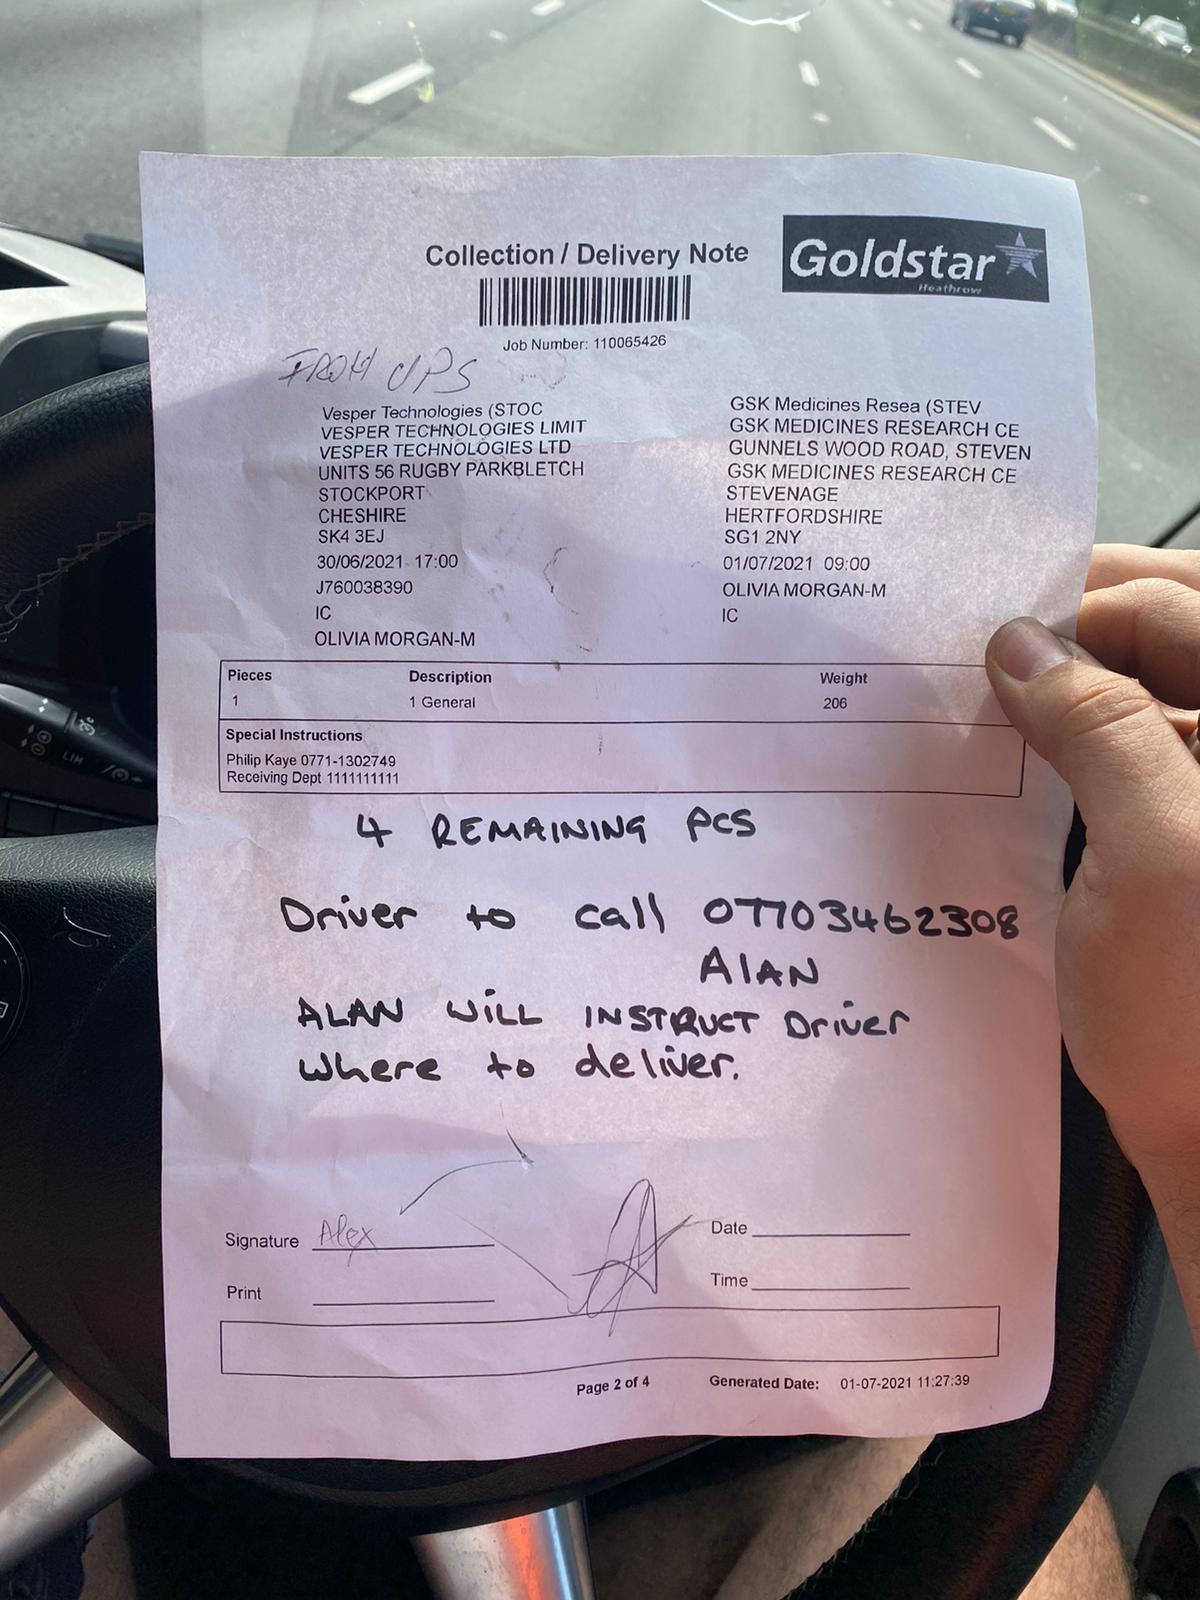 Collection / Delivery Note
Goldstar
Heathrow
Job Number: 110065426
FROM UPS
Vesper Technologies (STOC
VESPER TECHNOLOGIES LIMIT
VESPER TECHNOLOGIES LTD
UNITS 56 RUGBY PARKBLETCH
STOCKPORT
CHESHIRE
SK4 3EJ
30/06/2021 17:00
J760038390
IC
OLIVIA MORGAN-M
GSK Medicines Resea (STEV
GSK MEDICINES RESEARCH CE
GUNNELS WOOD ROAD, STEVEN
GSK MEDICINES RESEARCH CE
STEVENAGE
HERTFORDSHIRE
SG1 2NY
01/07/2021 09:00
OLIVIA MORGAN-M
IC
Pieces Description Weight
1 1 General 206
Special Instructions
Philip Kaye 0771-1302749
Receiving Dept 1111111111
4 REMAINING PCS
Driver to call 07703462308
AlAN
ALAN WiLL INSTRUCT Driver
Where to deliver.
Signature Alex
Date
Print
Time
Page 2 of 4
Generated Date: 01-07-2021 11:27:39
LIM